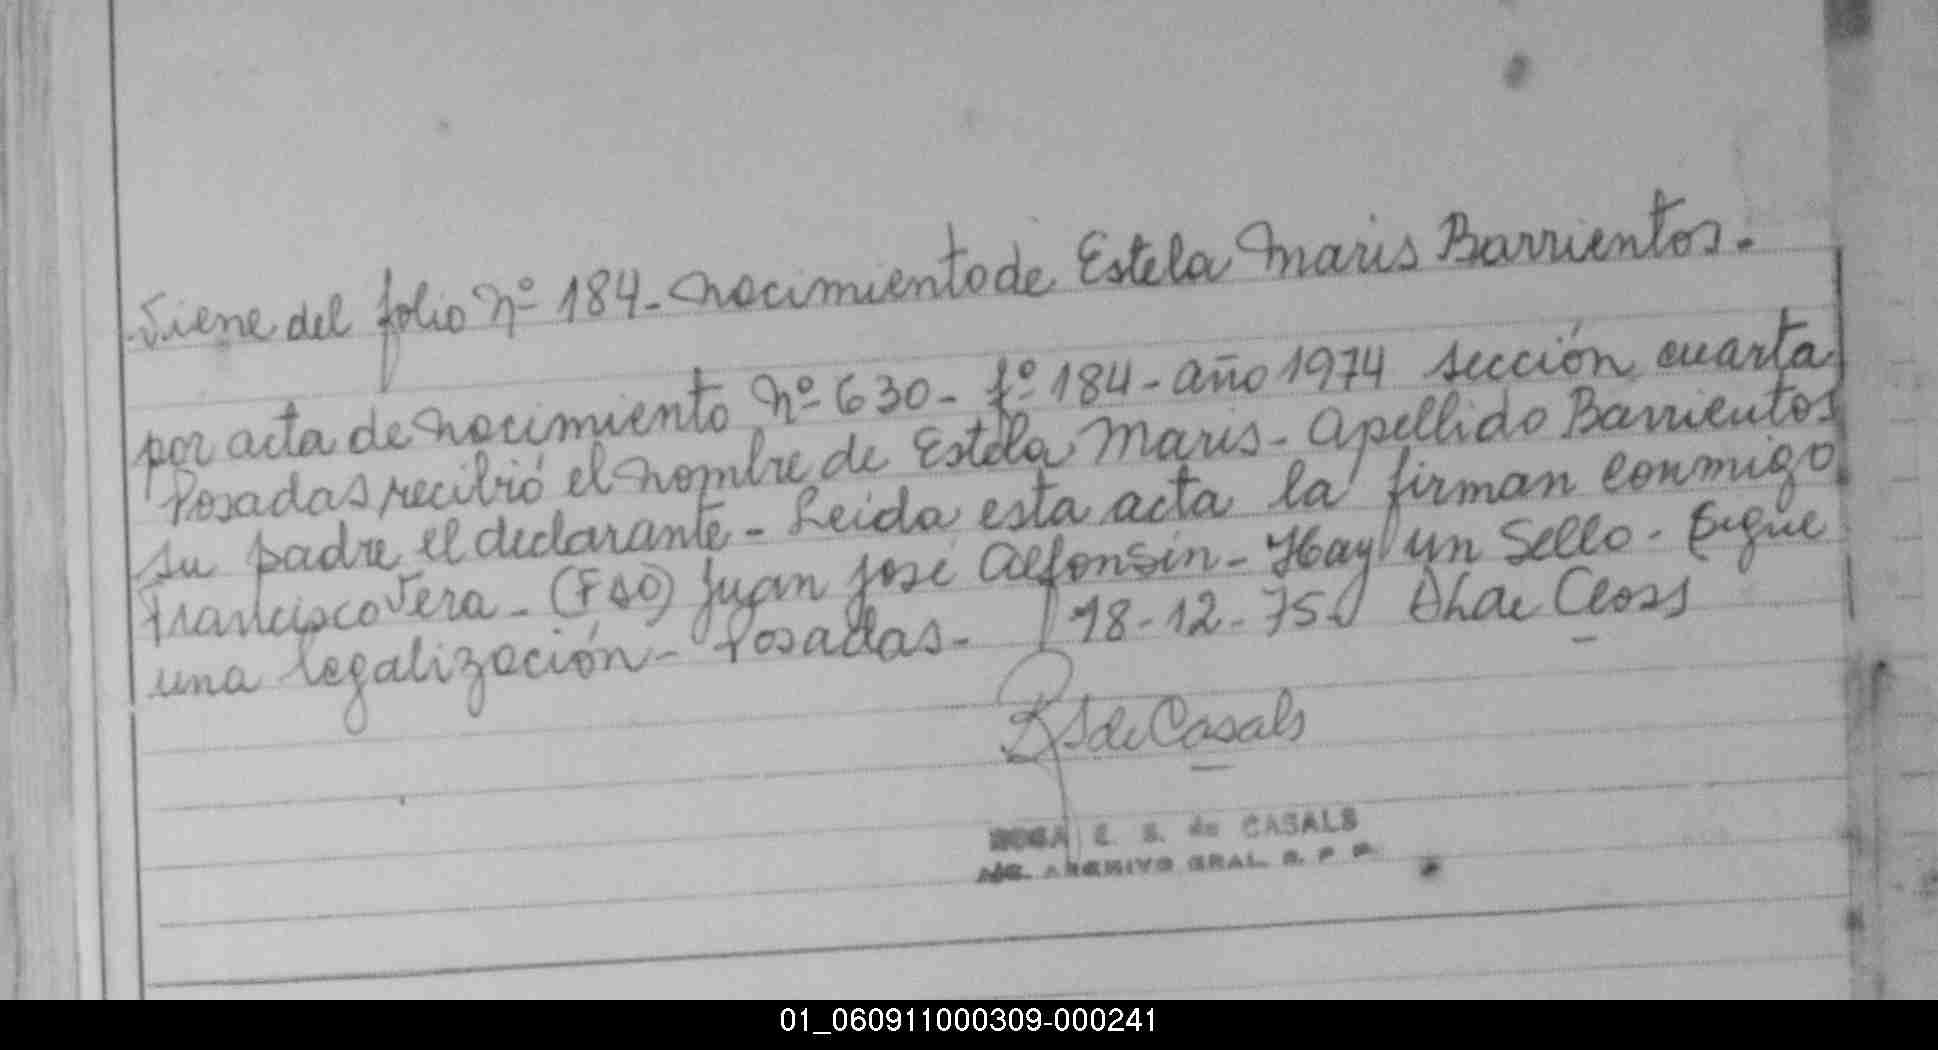 Viene del folio Nº 184 - Nacimiento de Estela Maris Barrientos.
por acta de nacimiento Nº 630 - fº 184 - año 1974 sección cuarta
Posadas recibió el nombre de Estela Maris - Apellido Barrientos
su padre el declarante - Leida esta acta la firman conmigo
Francisco Vera - (FDO) Juan José Alfonsin - Hay un Sello - Sigue
una legalización - Posadas - 18-12-75. Closs
de Casals
ROSA E. S. de CASALS
ARCHIVO GRAL. R. P. P.
01_060911000309-000241